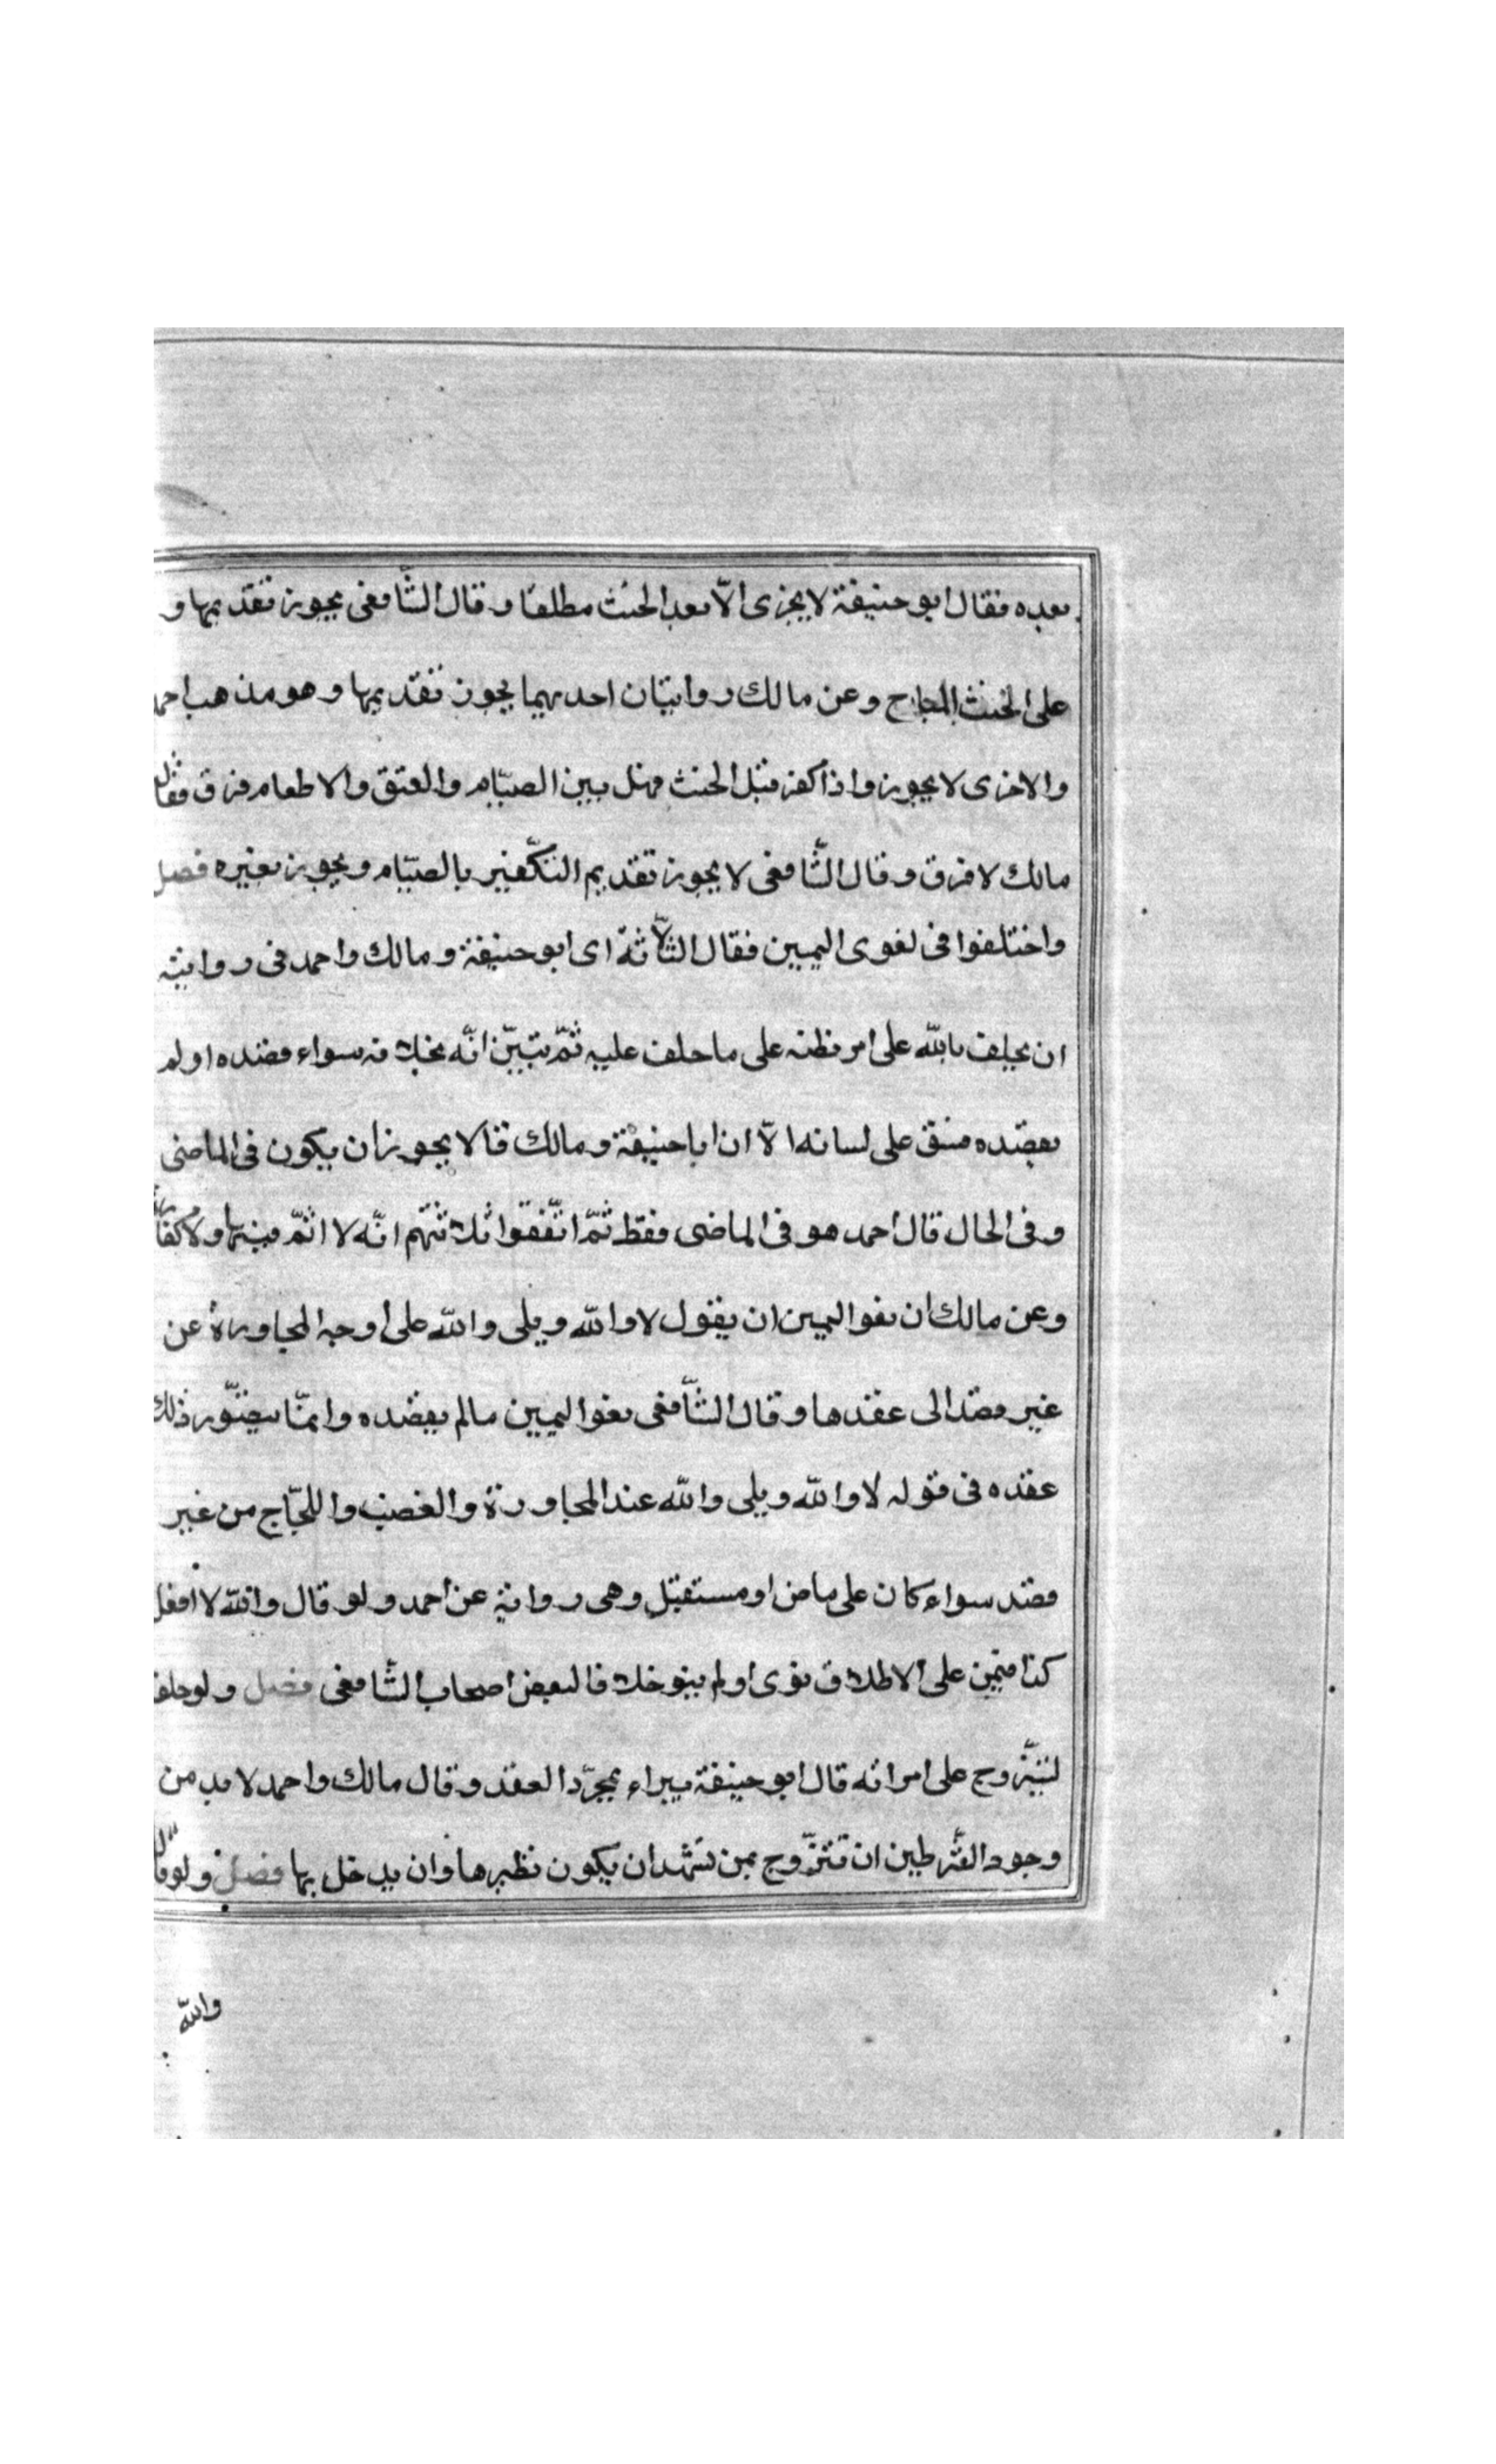 بعده فقال ابو حنيفة لا يجزى الّا بعد الحنث مطلقا و قال الشّافعى يجوز تقديمها و
على الحنث المباح و عن مالك روايتان احديهما يجوز تقديمها و هو مذهب احمد
والاخرى لا يجوز واذا كفر قبل الحنث فهل بين الصيّام والعتق والاطعام فرق فقال
مالك لا فرق و قال الشّافعى لا يجوز تقديم التكّفير بالصيّام و يجوز بغيره فصل
واختلفوا فى لغوى اليمين فقال الثّلاثة اى ابو حنيفة و مالك واحمد فى رواية
ان يحلف باللّه على امر يظنه على ما حلف عليه ثمّ يتبيّن انّه بخلافه سواء قصده او لم
يقصده فسبق على لسانه الّا ان ابا حنيفة و مالك قالا يجوز ان يكون فى الماضى
و فى الحال قال احمد هو فى الماضى فقط ثمّ اتّفقوا ثلاثتهم انّه لا اثم فيها ولا كفّارة
و عن مالك ان لغوا اليمين ان يقول لا واللّه و بلى واللّه على وجه المحاورة عن
غير قصد الى عقدها و قال الشّافعى لغوا اليمين ما لم يقصده وانمّا يتصوّر ذلك
عقده فى قوله لا واللّه و بلى واللّه عند المحاورة والغضب واللجّاج من غير
قصد سواء كان على ماض او مستقبل وهى رواية عن احمد و لو قال واللّه لا افعل
كذا فيمين على الاطلاق نوى او لم ينو خلافا لبعض اصحاب الشّافعى فصل و لو حلف
ليتزّوج على امراته قال ابو حنيفة يبراء بمجرّد العقد و قال مالك واحمد لا بد من
وجود الشّرطين ان يتزّوج بمن تشهد ان يكون نظيرها وان يدخل بها فصل ولو قال
واللّه